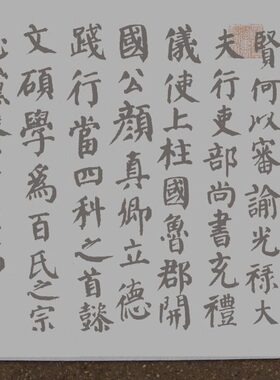 賢何以審諭光祿大
夫行吏部尚書充禮
儀使上柱國魯郡開
國公顏真卿立德
踐行當四科之首懿
文碩學爲百氏之宗